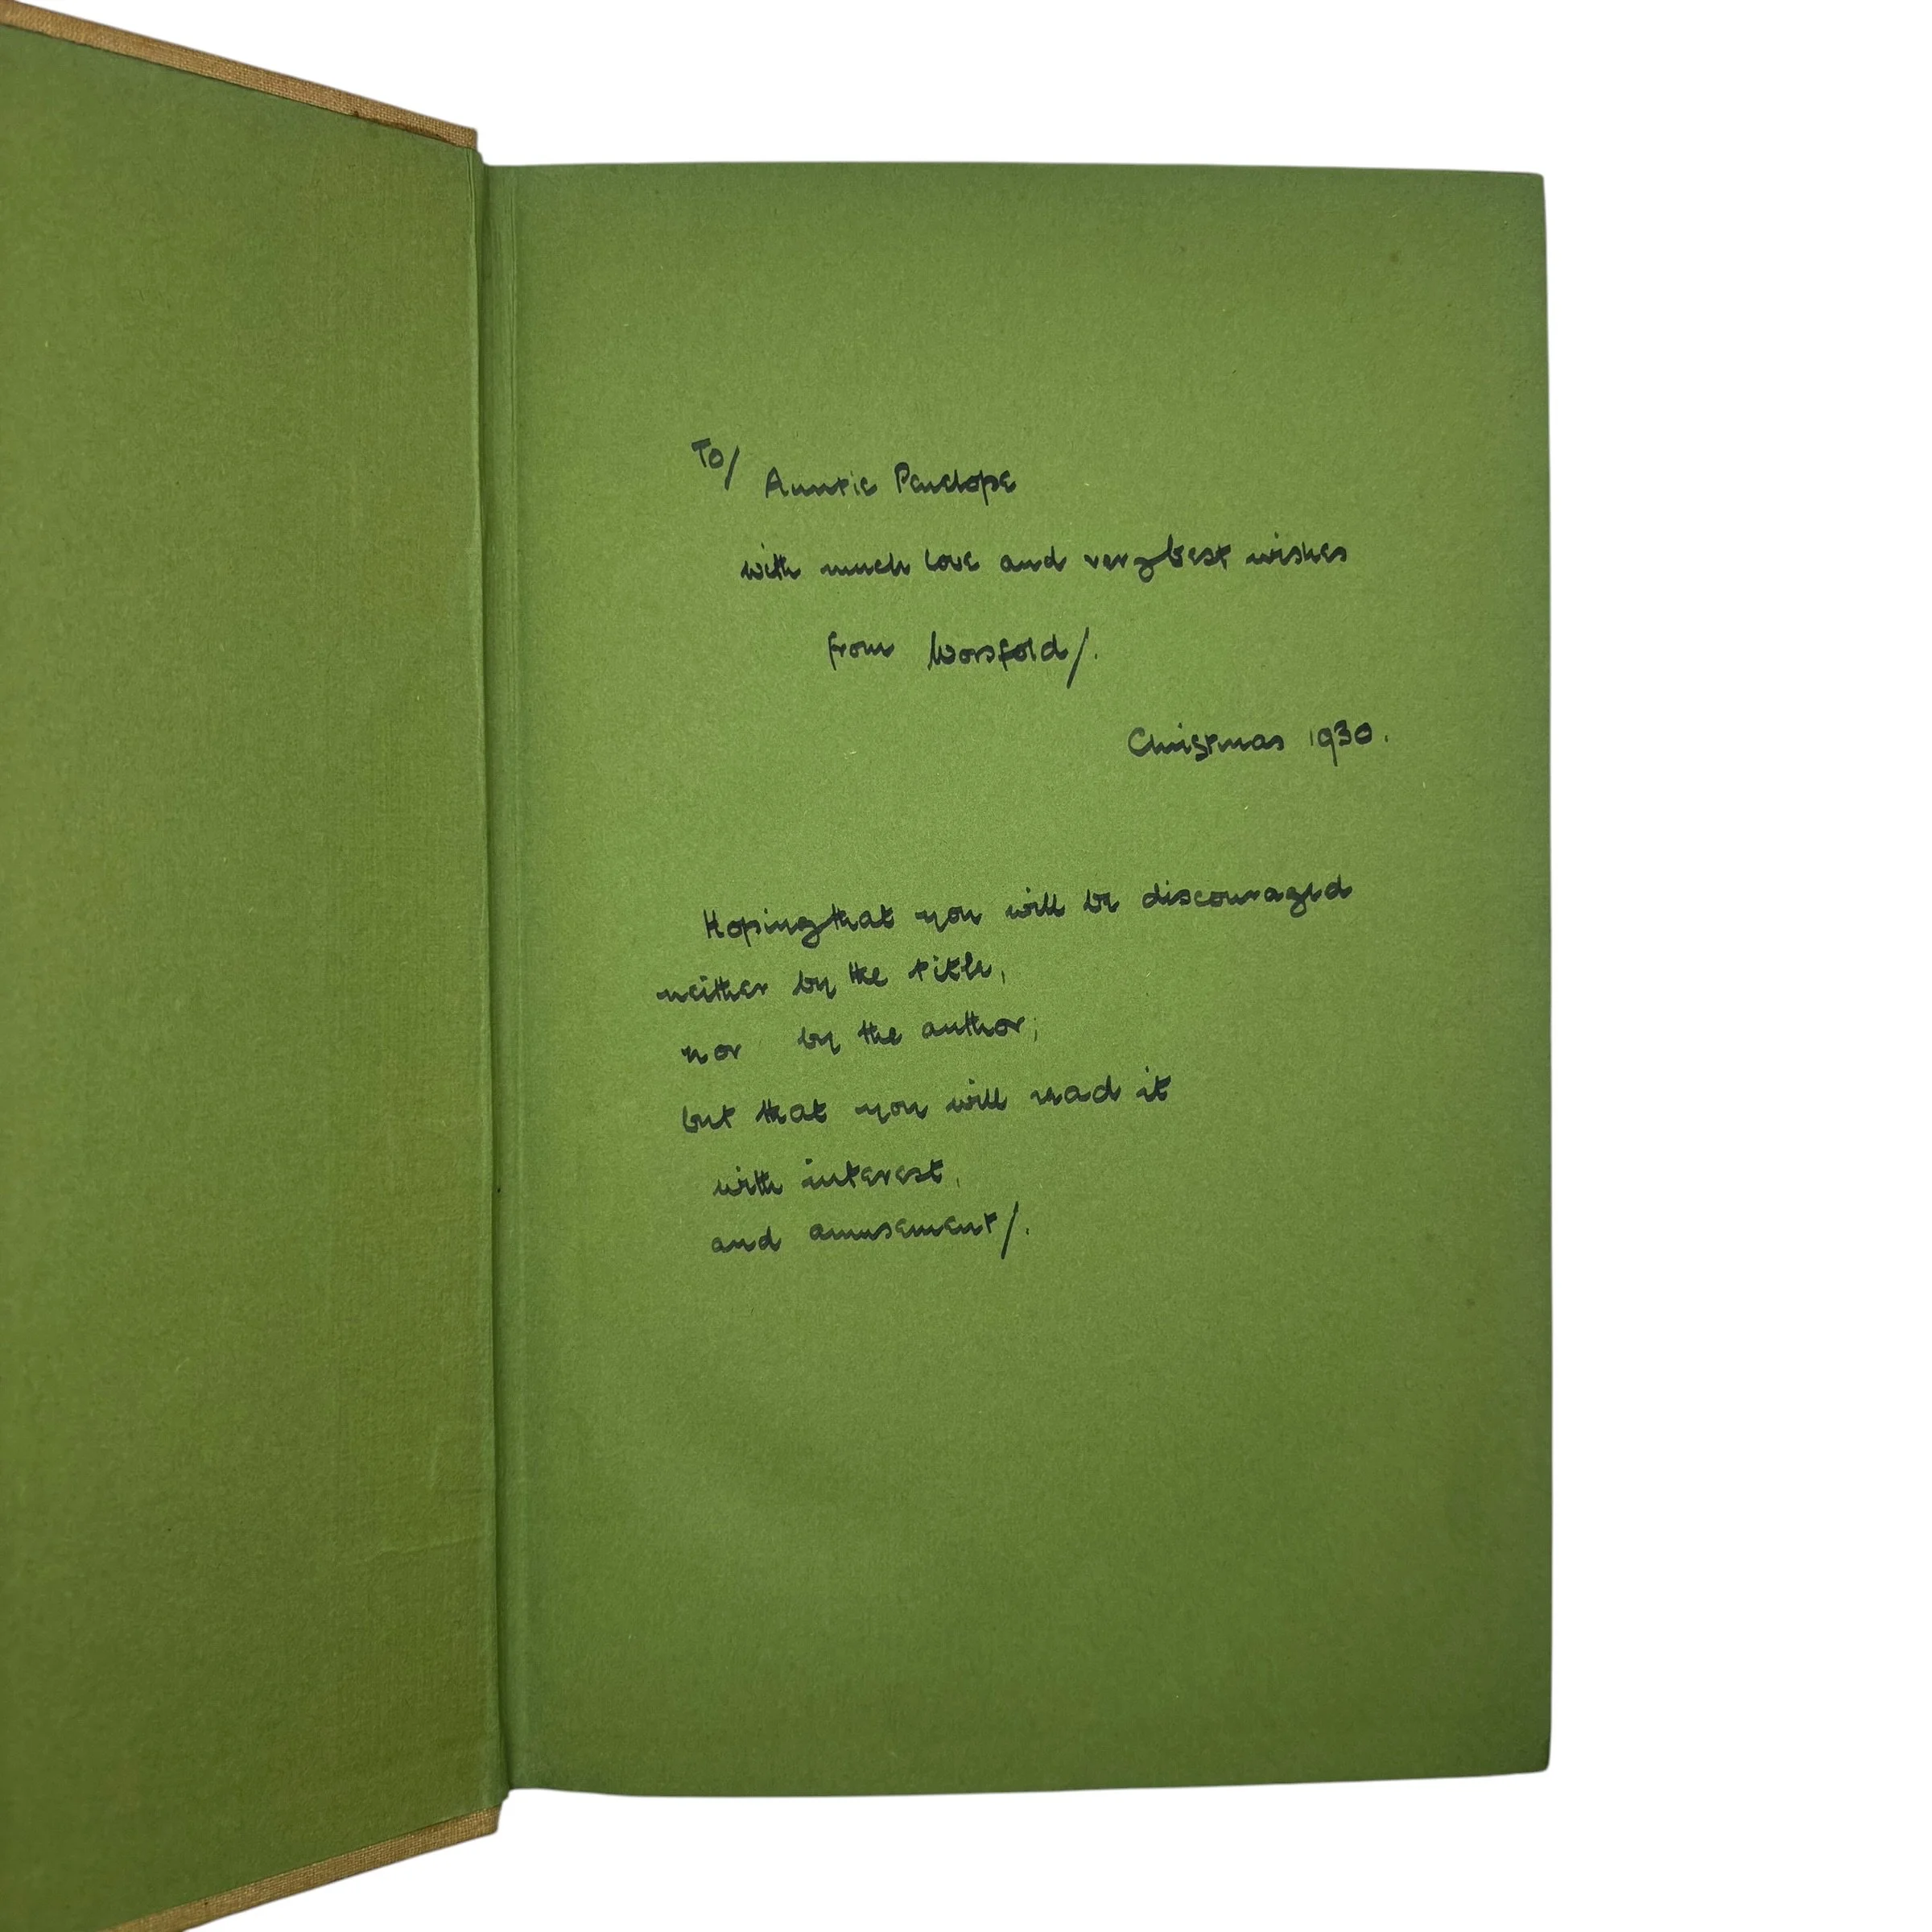 To/ Auntie Penelope
with much love and very best wishes
from Worsfold/.
Christmas 1930.
Hoping that you will be discouraged
neither by the title,
nor by the author;
but that you will read it
with interest,
and amusement/.